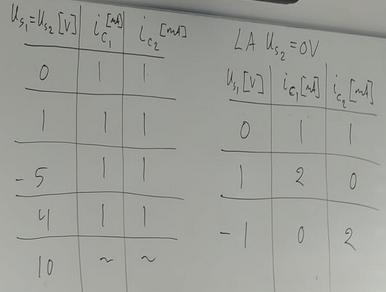 Us1=Us2 [V] ic1 [mA] ic2 [mA]
0 1 1
1 1 1
-5 1 1
4 1 1
10 ~ ~
LA Us2=0V
Us1 [V] ic1 [mA] ic2 [mA]
0 1 1
1 2 0
-1 0 2